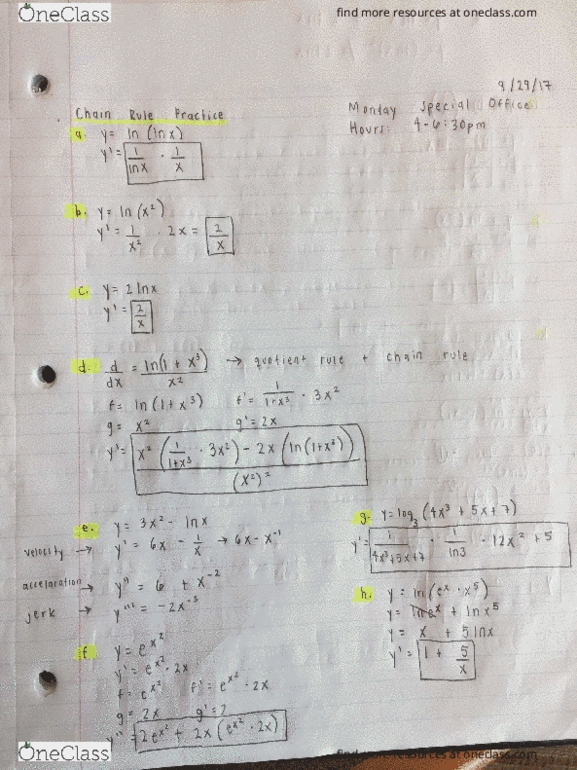 OneClass
find more resources at oneclass.com
9/29/17
Chain Rule Practice
Monday Special Office
Hours: 4-6:30pm
a. y = ln (ln x)
y' = 1/lnx · 1/x
b. y = ln (x²)
y' = 1/x² · 2x = 2/x
c. y = 2 lnx
y' = 2/x
d. d/dx = ln(1 + x³)/x² → quotient rule + chain rule
f = ln (1 + x³) f' = 1/1+x³ · 3x²
g = x² g' = 2x
y' = x² (1/1+x³ · 3x²) - 2x (ln (1+x³)) / (x²)²
e. y = 3x² - lnx
velocity → y' = 6x - 1/x → 6x - x⁻¹
acceleration → y'' = 6 + x⁻²
jerk → y''' = -2x⁻³
f. y = e^x²
y' = e^x² · 2x
f = e^x² f' = e^x² · 2x
g = 2x g' = 2
y'' = 2e^x² + 2x (e^x² · 2x)
g. y = log₃ (4x³ + 5x + 7)
y' = 1/4x³+5x+7 · 1/ln3 · 12x² + 5
h. y = ln (eˣ · x⁵)
y = lneˣ + lnx⁵
y = x + 5 lnx
y' = 1 + 5/x
OneClass
find more resources at oneclass.com